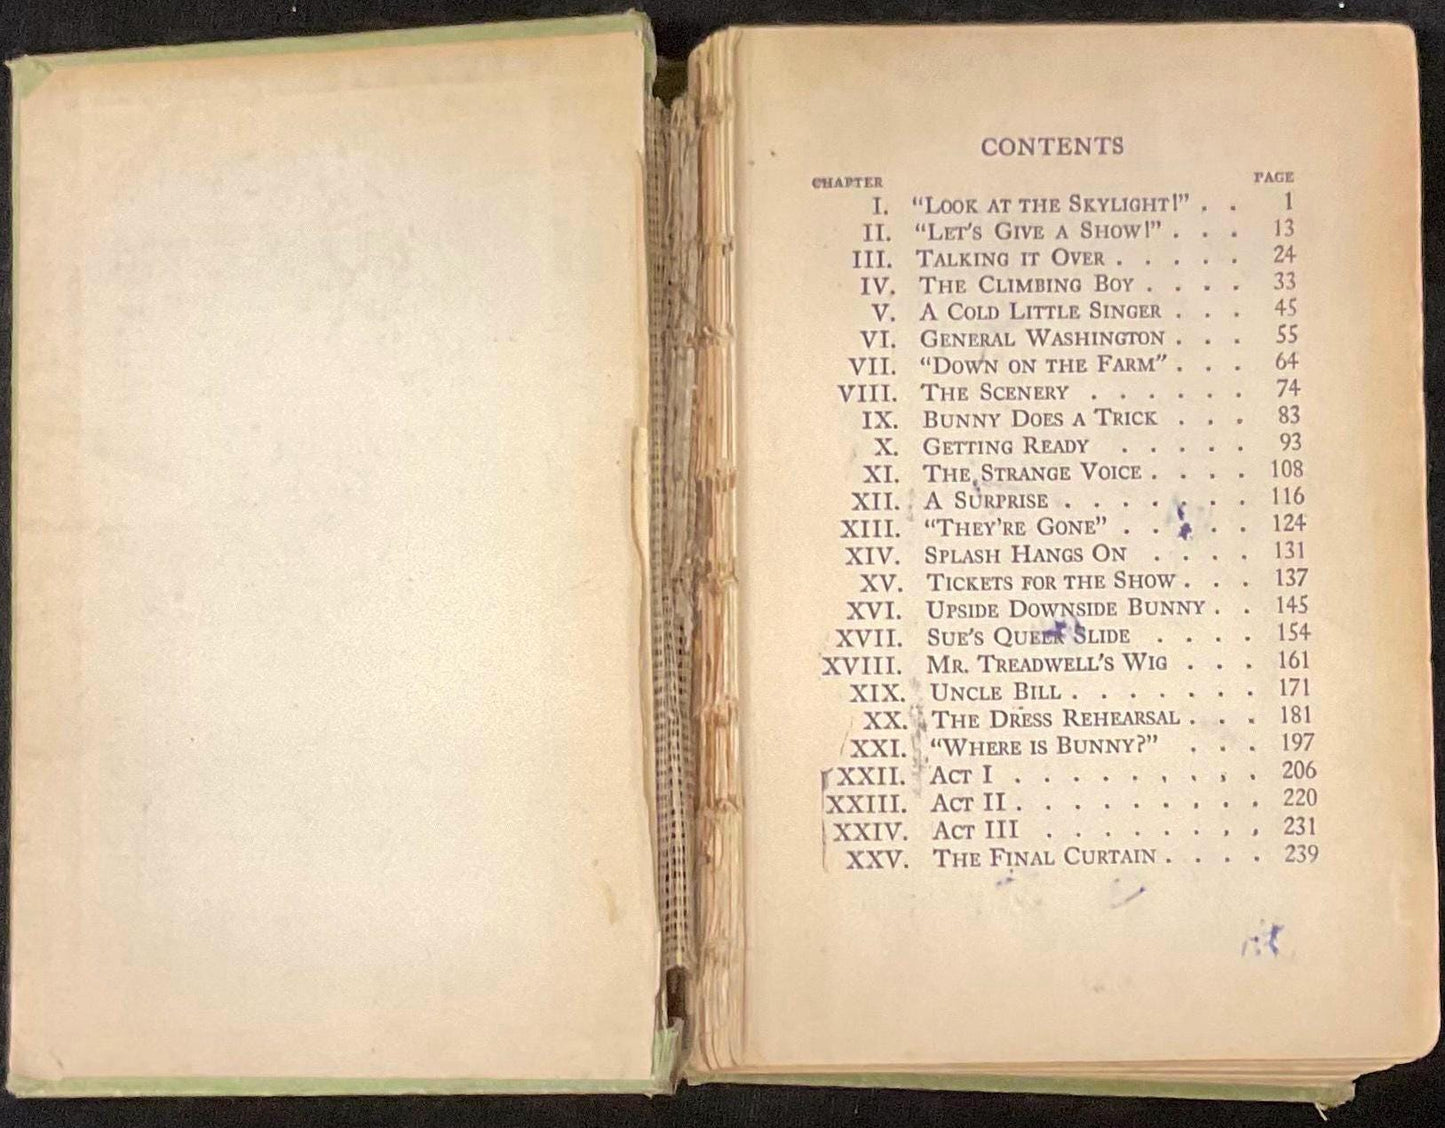 CONTENTS
CHAPTER PAGE
I. “LOOK AT THE SKYLIGHT!” . . 1
II. “LET’S GIVE A SHOW!” . . . 13
III. TALKING IT OVER . . . . . 24
IV. THE CLIMBING BOY . . . . 33
V. A COLD LITTLE SINGER . . . 45
VI. GENERAL WASHINGTON . . . 55
VII. “DOWN ON THE FARM” . . . 64
VIII. THE SCENERY . . . . . . 74
IX. BUNNY DOES A TRICK . . . 83
X. GETTING READY . . . . . 93
XI. THE STRANGE VOICE . . . . 108
XII. A SURPRISE . . . . . . . 116
XIII. “THEY’RE GONE” . . . . . 124
XIV. SPLASH HANGS ON . . . . 131
XV. TICKETS FOR THE SHOW . . . 137
XVI. UPSIDE DOWNSIDE BUNNY . . 145
XVII. SUE’S QUEER SLIDE . . . . 154
XVIII. MR. TREADWELL’S WIG . . . 161
XIX. UNCLE BILL . . . . . . . 171
XX. THE DRESS REHEARSAL . . . 181
XXI. “WHERE IS BUNNY?” . . . 197
XXII. ACT I . . . . . . . . . 206
XXIII. ACT II . . . . . . . . . 220
XXIV. ACT III . . . . . . . . 231
XXV. THE FINAL CURTAIN . . . . 239